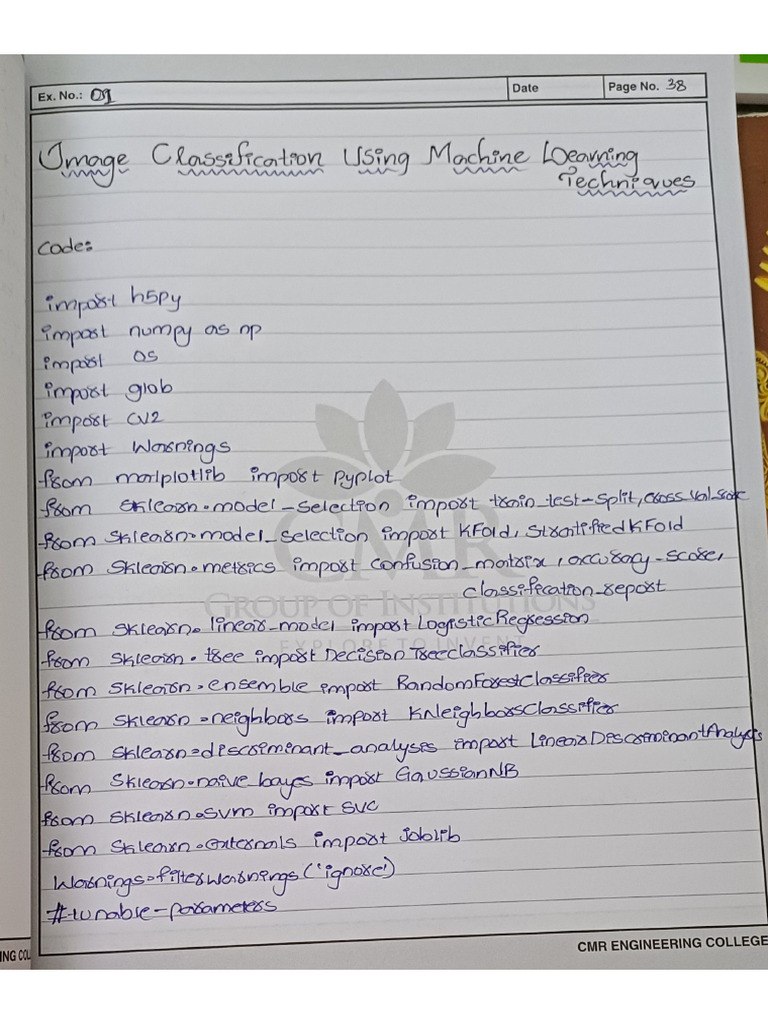 Ex. No.: 09 Date Page No. 38
Image Classification Using Machine Learning
Techniques
Code:
import h5py
import numpy as np
import os
import glob
import cv2
import warnings
from matplotlib import pyplot
from sklearn.model_selection import train_test-split, cross_val_score
from sklearn.model_selection import KFold, StratifiedKFold
from sklearn.metrics import confusion_matrix, accuracy-score,
classification_report
from sklearn.linear_model import LogisticRegression
from sklearn.tree import DecisionTreeClassifier
from sklearn.ensemble import RandomForestClassifier
from sklearn.neighbors import KNeighborsClassifier
from sklearn.discriminant_analysis import LinearDiscriminantAnalysis
from sklearn.naive_bayes import GaussianNB
from sklearn.svm import SVC
from sklearn.externals import joblib
warnings.filterwarnings('ignore')
#tunable-parameters
CMR
GROUP OF INSTITUTIONS
EXPLORE TO INVENT
ING COL
CMR ENGINEERING COLLEGE